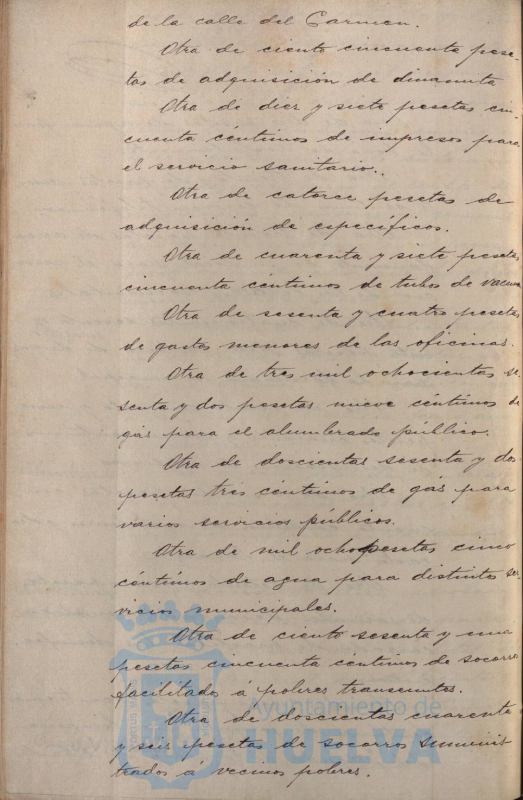 de la calle del Carmen.
Otra de ciento cincuenta pese-
tas de adquisición de dinamita
Otra de diez y siete pesetas cin-
cuenta céntimos de impresos para
el servicio sanitario..
Otra de catorce pesetas de
adquisición de específicos.
Otra de cuarenta y siete pesetas
cincuenta céntimos de tubos de vacuna
Otra de sesenta y cuatro pesetas
de gastos menores de las oficinas.
Otra de tres mil ochocientas se-
senta y dos pesetas nueve céntimos de
gás para el alumbrado público.
Otra de doscientas sesenta y dos
pesetas tres céntimos de gás para
varios servicios públicos.
Otra de mil ocho pesetas cinco
céntimos de agua para distintos ser-
vicios municipales.
Otra de ciento sesenta y una
pesetas cincuenta céntimos de socorros
facilitados á pobres transeuntes.
Otra de doscientas cuarenta
y seis pesetas de socorros suminis
trados á vecinos pobres.
Ayuntamiento de
HUELVA